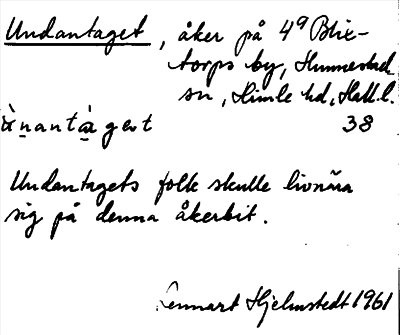 Undantaget, åker på 4ª Blix-
torps by, Hunnestads
sn, Himle hd, Hall. l.
ànantàgert 38
Undantagets folk skulle livnära
sig på denna åkerbit.
Lennart Hjelmstedt 1961